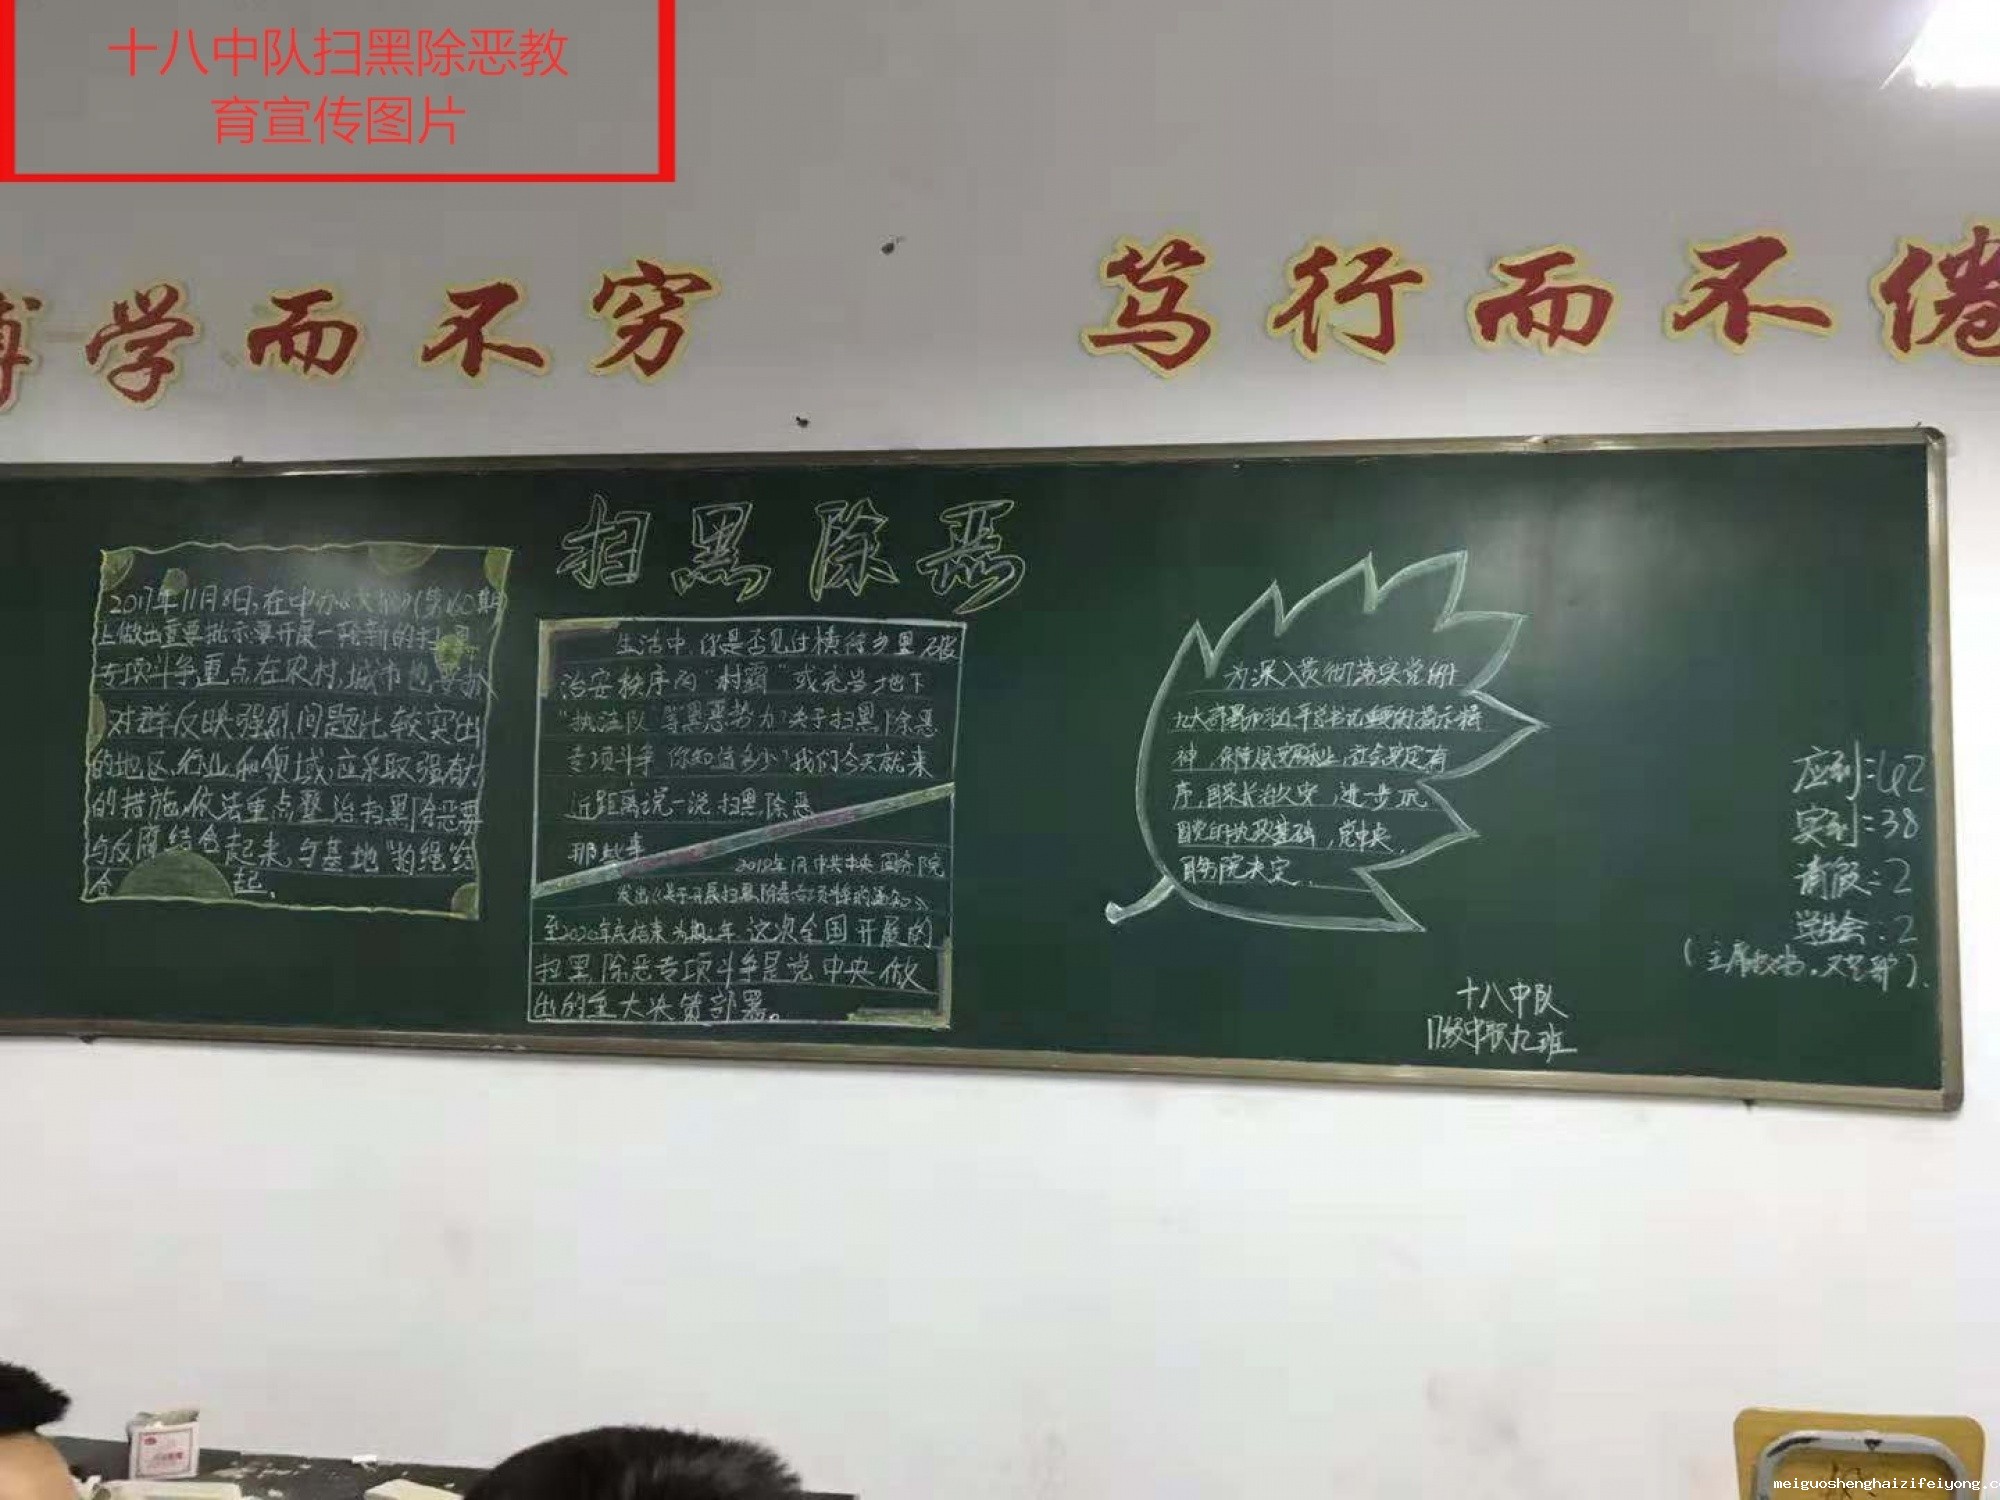 十八中队扫黑除恶教
育宣传图片
博学而不穷
笃行而不倦
扫黑除恶
2017年11月8日,在中办《》(第160期
上做出重要批示要开展一轮新的扫黑
专项斗争重点在农村,城市也要办
对群反映强烈,问题比较突出
的地区,行业和领域,应采取强有力
的措施,依法重点整治扫黑除恶要
与反腐结合起来,与基地"拍绳给
合 起.
生活中,你是否见过横行乡里破
治安秩序的"村霸"或充当地下
"执法队"等黑恶势力?关于扫黑除恶
专项斗争 你知情多少?我们今天就来
近距离说一说扫黑除恶
那些事
2018年1月中共中央 国务院
发出《关于开展扫黑除恶专项斗争的通知》
至2020年底结束 为期三年 这次全国开展的
扫黑除恶专项斗争是党中央做
出的重大决策部署。
为深入贯彻落实党的
九大部署和习近平总书记重要的指示精
神,保障人民安居乐业,社会安定有
序,国家长治久安,进一步巩
固党的执政基础,党中央,
国务院决定.
应到:42
实到:38
请假:2
学生会:2
十八中队
17级中职九班
meiguoshenghaizifeiyong.c